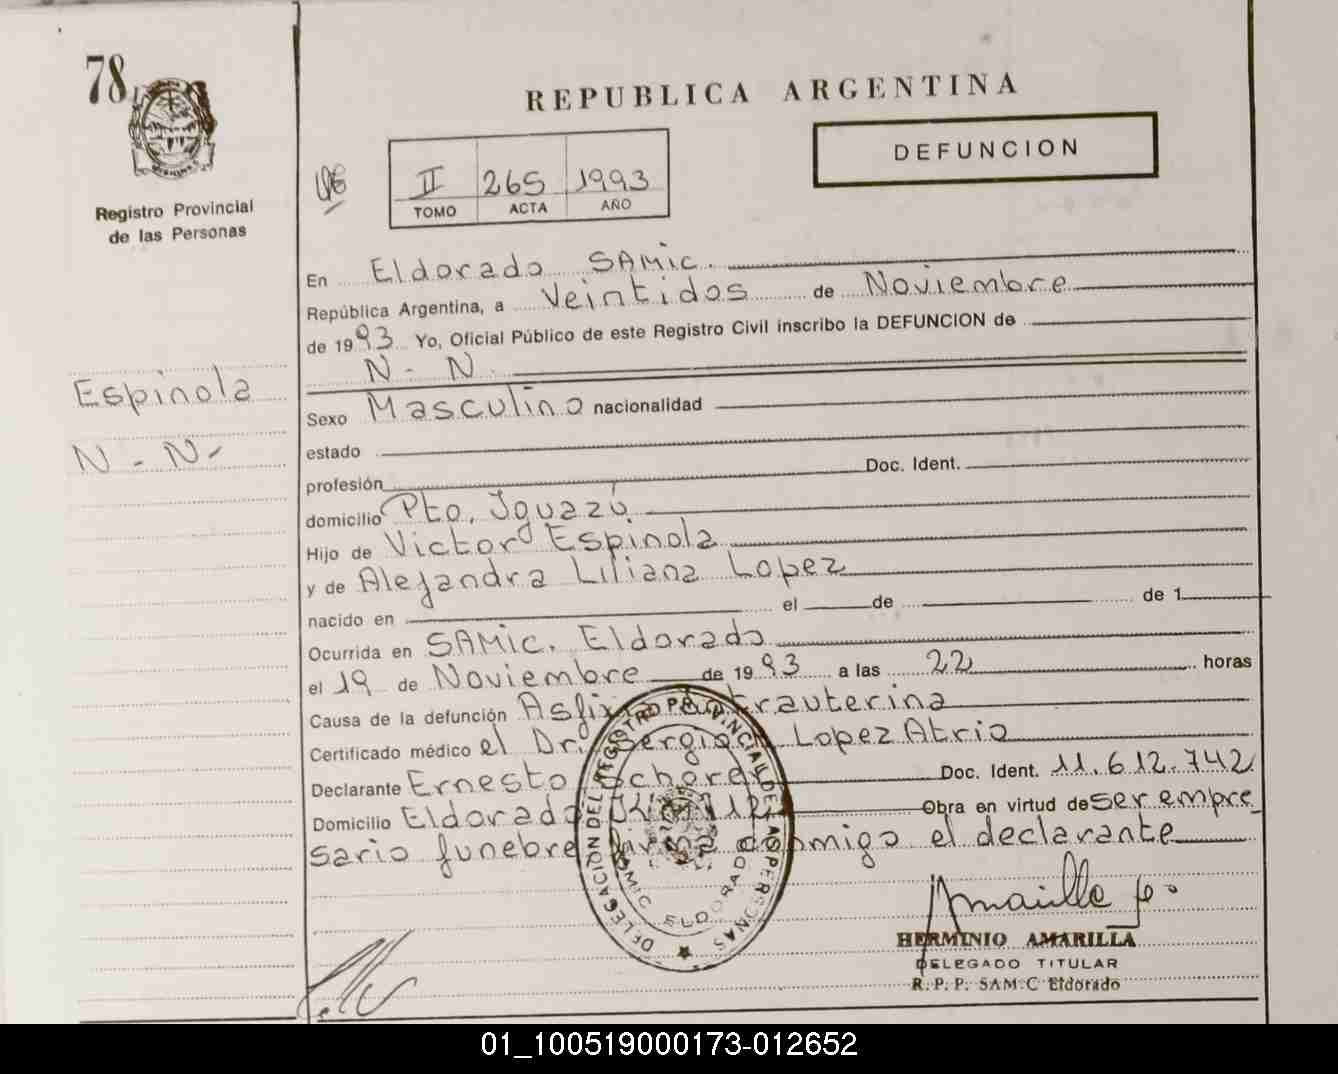 78
REPUBLICA ARGENTINA
DEFUNCION
Registro Provincial
de las Personas
II 265 1993
TOMO ACTA AÑO
En Eldorado SAMic.
República Argentina, a Veintidos de Noviembre
de 1993 Yo, Oficial Público de este Registro Civil inscribo la DEFUNCION de
N - N
Espinola
N - N-
Sexo Masculino nacionalidad
estado
profesión Doc. Ident.
domicilio Pto. Iguazú
Hijo de Victor Espinola
y de Alejandra Liliana Lopez
nacido en el de de 1
Ocurrida en SAMic. Eldorado
el 19 de Noviembre de 1993 a las 22 horas
Causa de la defunción Asfixia intrauterina
Certificado médico el Dr. Sergio Lopez Atrio
Declarante Ernesto Doc. Ident. 11.612.742
Domicilio Eldorado Obra en virtud de ser empre
sario funebre firma conmigo el declarante
DELEGACION DEL REGISTRO PROVINCIAL DE LAS PERSONAS
SAMIC ELDORADO
HERMINIO AMARILLA
DELEGADO TITULAR
R. P. P. SAM.C Eldorado
01_100519000173-012652